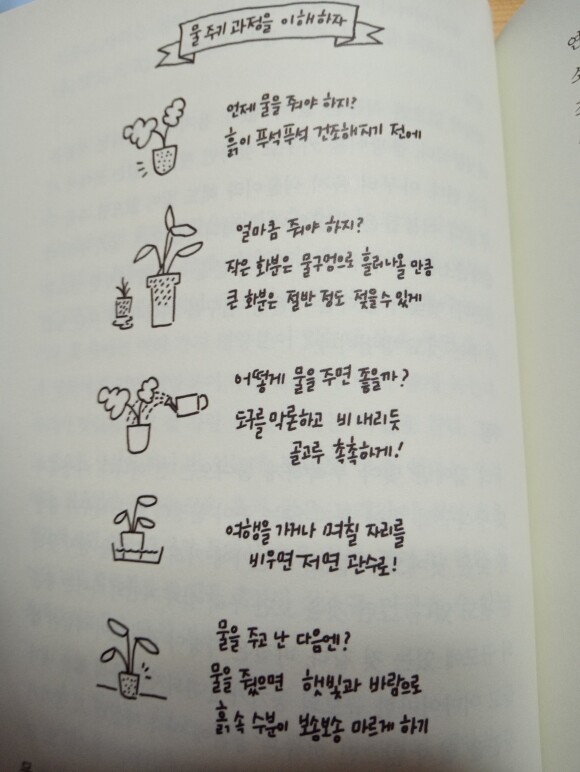 물 주기 과정을 이해하자
언제 물을 줘야 하지?
흙이 푸석푸석 건조해지기 전에
얼마큼 줘야 하지?
작은 화분은 물구멍으로 흘러나올 만큼
큰 화분은 절반 정도 젖을 수 있게
어떻게 물을 주면 좋을까?
도구를 막론하고 비 내리듯
골고루 촉촉하게!
여행을 가거나 며칠 자리를
비우면 저면 관수로!
물을 주고 난 다음엔?
물을 줬으면 햇빛과 바람으로
흙 속 수분이 보송보송 마르게 하기